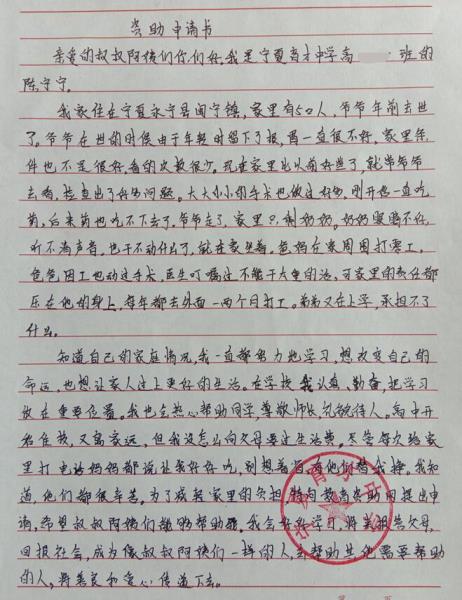 资助申请书
亲爱的叔叔阿姨们你们好,我是宁夏育才中学高 班的
陈宁宁。
我家住在宁夏永宁县闽宁镇,家里有5口人,爷爷年前去世
了。爷爷在世的时候由于年轻时留下了根,胃一直很不好,家里条
件也不是很好,看的次数很少。现在家里比以前好些了,就带爷爷
去看,检查出了什么问题。大大小小的手术也做过好多,刚开始一直吃
药,后来药也吃不下去了。爷爷走了,家里只剩奶奶。奶奶眼睛不好,
听不清声音,也干不动什么了,就在家坐着。爸妈在家周围打零工,
爸爸因工也动过手术,医生叮嘱过不能干太重的活,可家里的责任都
压在他的身上,每年都去外面一两个月打工。弟弟又在上学,承担不了
什么。
知道自己的家庭情况,我一直都努力地学习,想改变自己的
命运,也想让家人过上更好的生活。在学校我认真、勤奋,把学习
放在重要位置。我也会热心帮助同学,尊敬师长,礼貌待人。高中开
始住校,又离家远,但我没怎么向父母要过生活费。尽管每次给家
里打电话妈妈都说让我好好吃,别想着省,有他们替我挣。我知
道,他们都很辛苦。为了减轻家里的负担,特向教育资助网提出申
请,希望叔叔阿姨们能够帮助我,我会好好学习,将来报答父母,
回报社会,成为像叔叔阿姨们一样的人,去帮助其他需要帮助
的人,将善良和爱心传递下去。